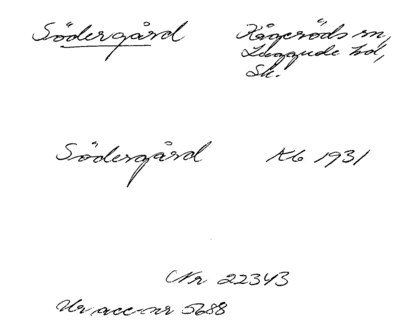 Södergård Kågeröds sn,
Luggude hd,
Sk.
Södergård Kb 1931
Nr 22343
Ur acc-nr 5688